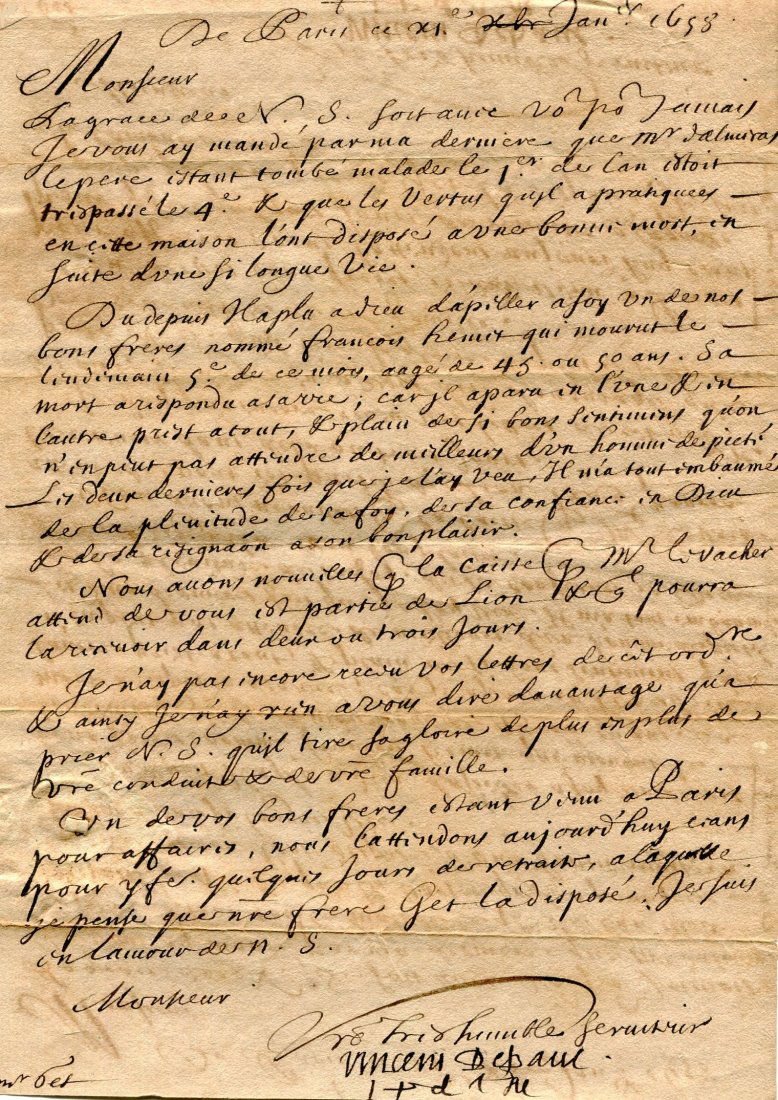 De Paris ce xi.e xbr Jan.er 1658.
Monsieur
La grace de N. S. soit avec vo9 po9 Jamais
Je vous ay mandé par ma derniere que mr d'almeras
le pere estant tombé malade le 1.er de lan estoit
trespassé le 4.e & que les Vertus qu'jl a pratiquees
en cette maison l'ont disposé a vne bonne mort, en
suite d'vne si longue Vie.
Du depuis Il a plu a dieu d'apeller a soy Vn de nos
bons freres nommé francois hemet qui mourut le
lendemain 5.e de ce mois, aagé de 45. ou 50 ans. Sa
mort a respondu a sa vie; car jl a paru en l'vne & en
l'autre prest a tout, & plain de si bons sentimens qu'on
n'en peut pas attendre de meilleurs d'vn homme de pieté
Les deux dernieres fois que je l'ay veu, Il m'a tout embaumé
de la plenitude de sa foy, de sa confiance en Dieu
& de sa resignaõn a son bon plaisir.
Nous auons nouuelles q la caisse q Mr le vacher
attend de vous est partie de Lion & ql pourra
la receuoir dans deux ou trois Jours.
Je n'ay pas encore receu vos lettres de cet ord.re
& ainsy Je n'ay rien a vous dire dauantage qu'a
prier N. S. qu'jl tire sa gloire de plus en plus de
vre conduite & de vre famille.
Vn de vos bons freres estant venu a Paris
pour affaires, nous l'attendons aujourd'huy ceans
pour y fe. quelques Jours de retraite, a laquelle
je pense que nre frere Get l'a disposé. Je suis
en lamour de n. S.
Monsieur
Vre tres humble seruiteur
Vincent Depaul
mr Get